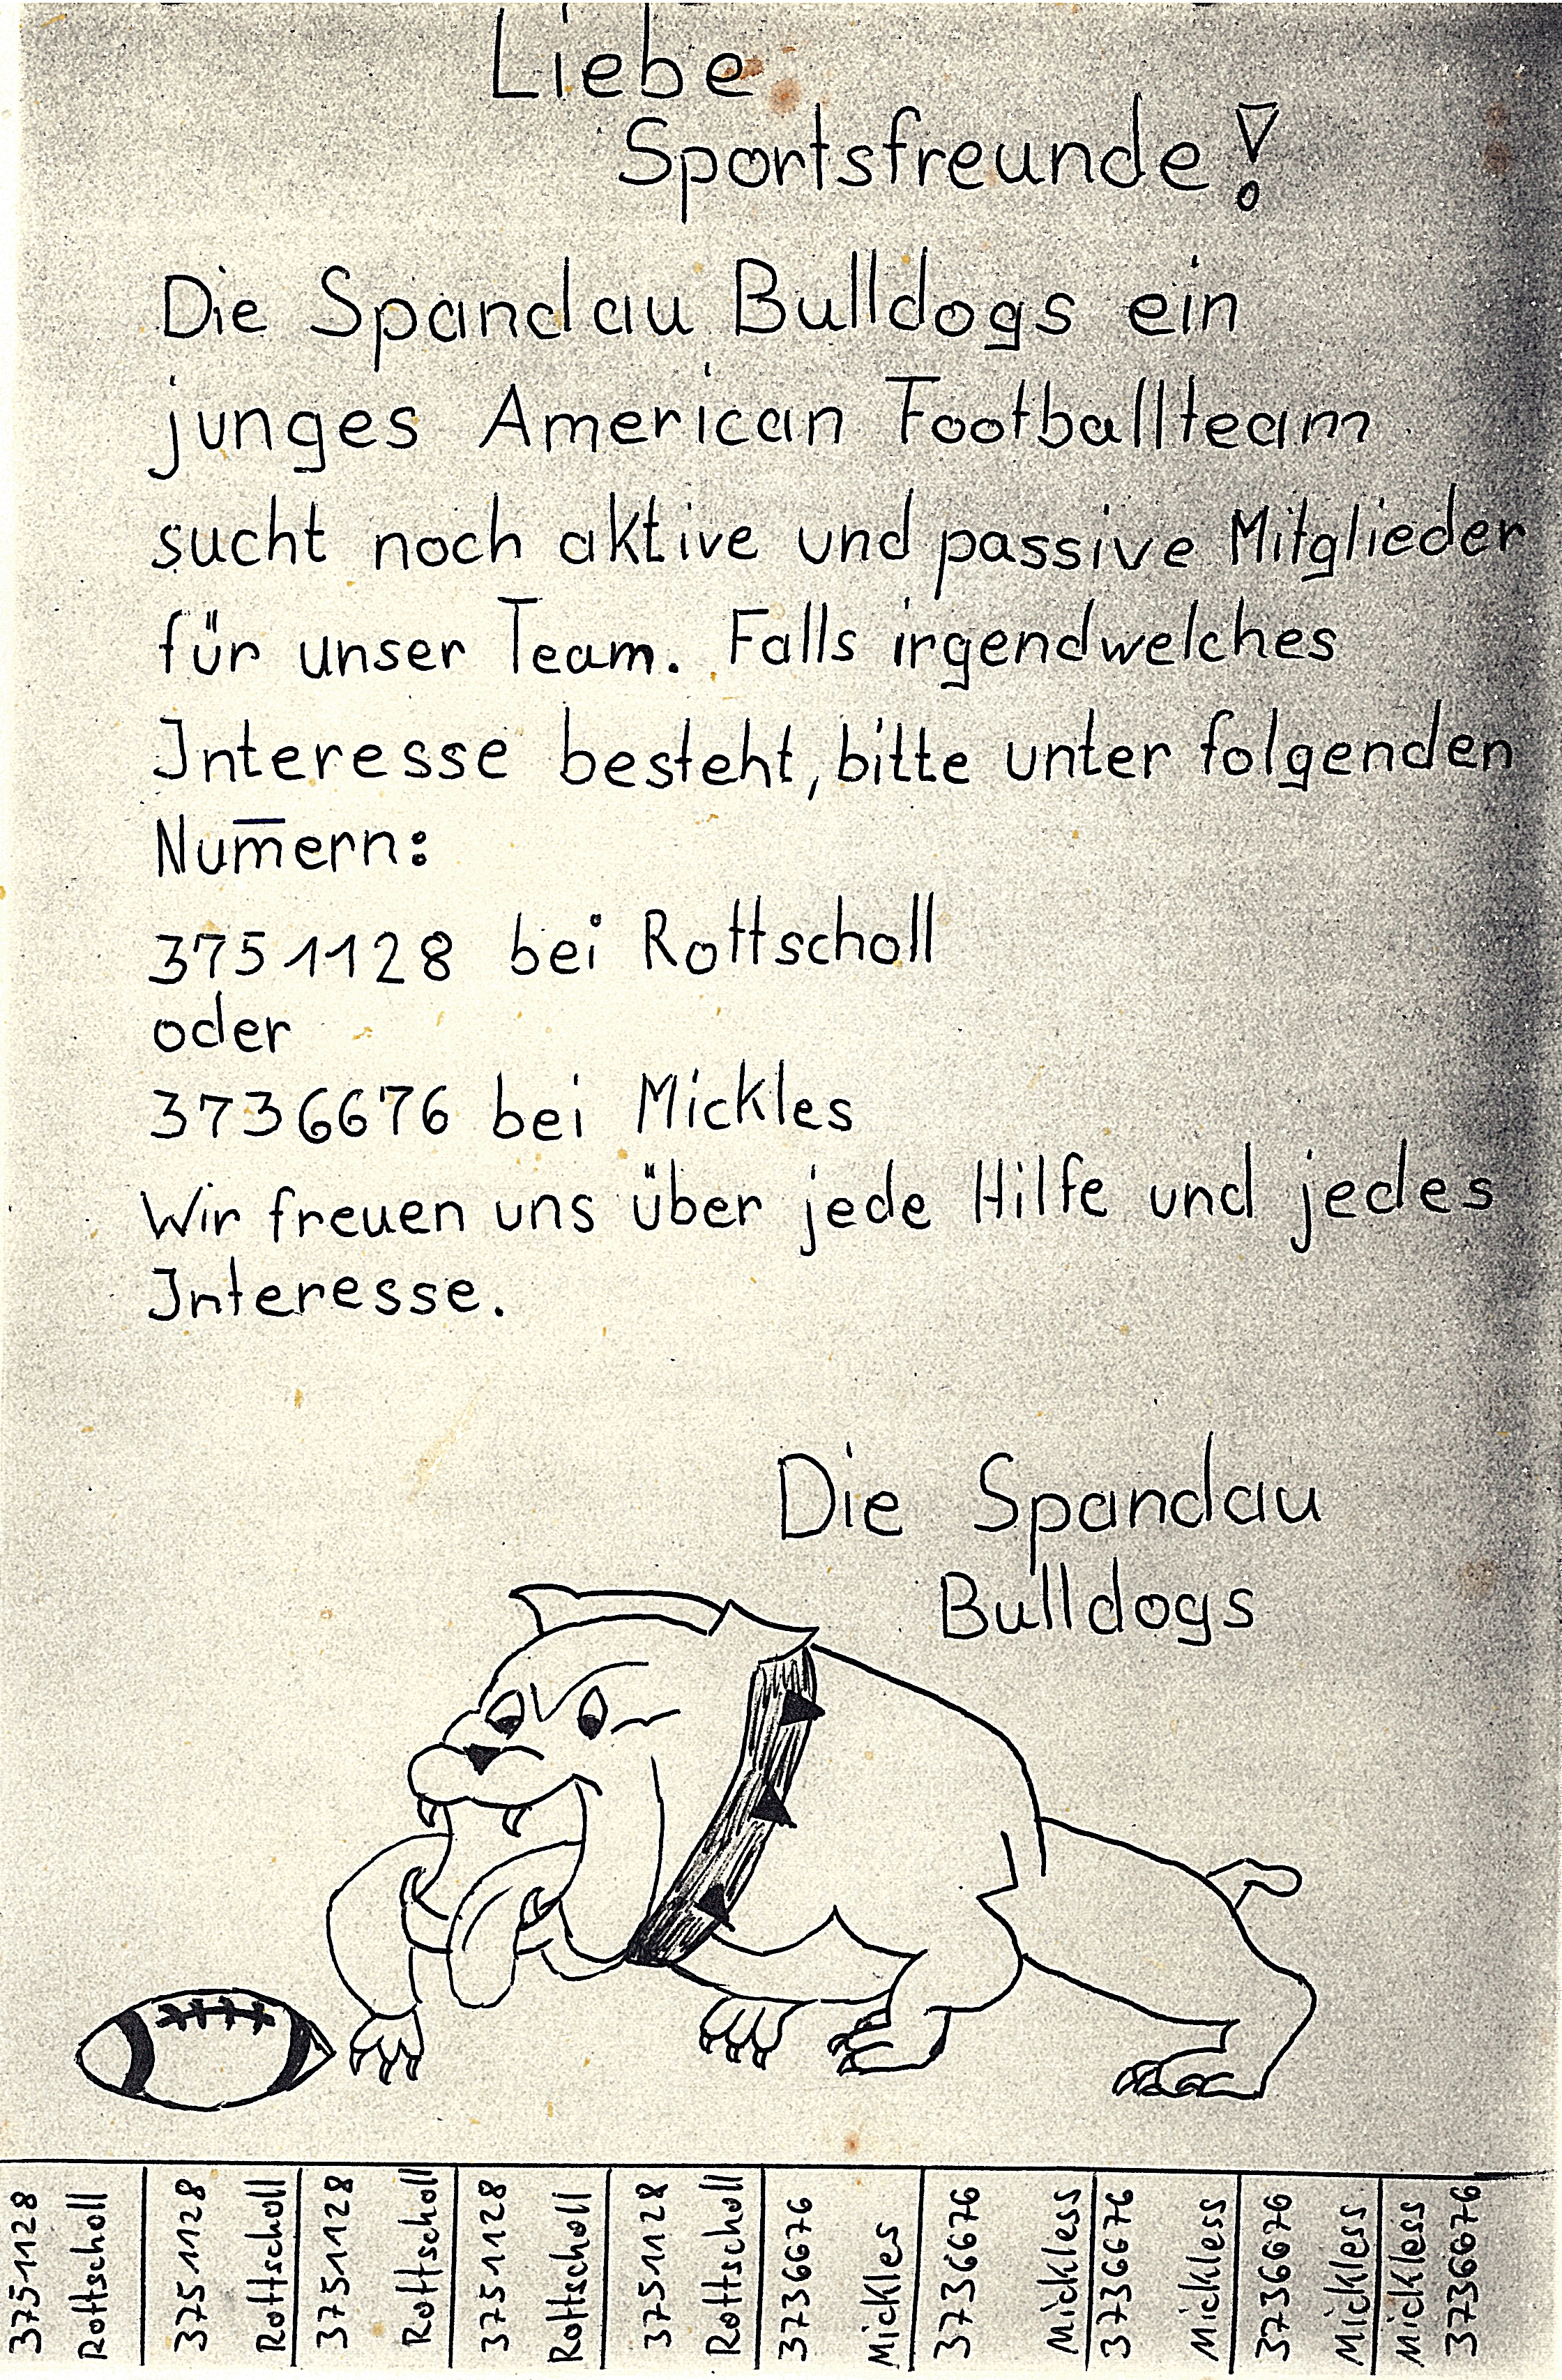 Liebe
Sportsfreunde!
Die Spandau Bulldogs ein
junges American Footballteam
sucht noch aktive und passive Mitglieder
für unser Team. Falls irgendwelches
Interesse besteht, bitte unter folgenden
Num̅ern:
3751128 bei Rottscholl
oder
3736676 bei Mickles
Wir freuen uns über jede Hilfe und jedes
Interesse.
Die Spandau
Bulldogs
3751128
Rottscholl
3751128
Rottscholl
3751128
Rottscholl
3751128
Rottscholl
3751128
Rottscholl
3736676
Mickles
3736676
Mickless
3736676
Mickless
3736676
Mickless
Mickless
3736676